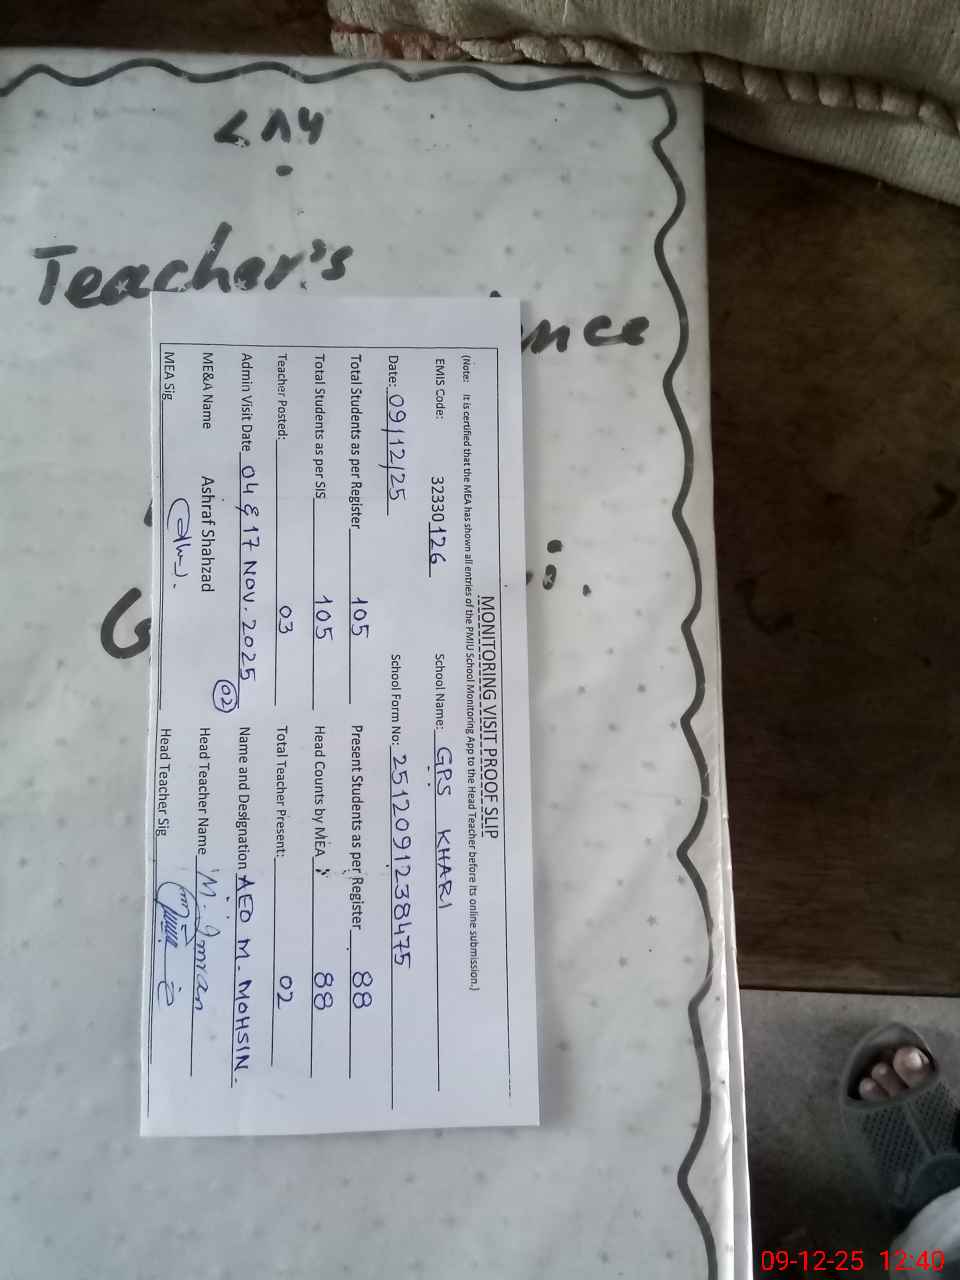 ۷۸۶
Teacher's
MONITORING VISIT PROOF SLIP
(Note: It is certified that the MEA has shown all entries of the PMIU School Monitoring App to the Head Teacher before its online submission.)
EMIS Code: 32330126 School Name: GPS KHARI
Date: 09/12/25 School Form No: 2512091238475
Total Students as per Register 105 Present Students as per Register 88
Total Students as per SIS 105 Head Counts by MEA 88
Teacher Posted: 03 Total Teacher Present: 02
Admin Visit Date 04 & 17 NOV. 2025 02 Name and Designation AEO M. MOHSIN.
ME&A Name Ashraf Shahzad Head Teacher Name M. Imran
MEA Sig Head Teacher Sig
09-12-25 12:40